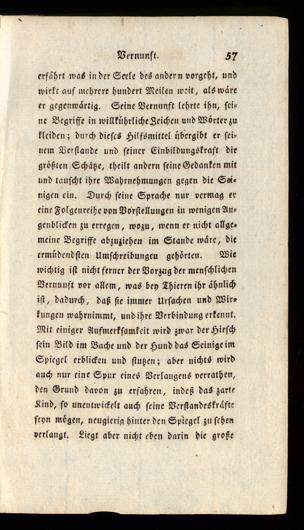 Vernunft. 57
erfährt was in der Seele des andern vorgeht, und
wirkt auf mehrere hundert Meilen weit, als wäre
er gegenwärtig. Seine Vernunft lehrte ihn, sei-
ne Begriffe in willkührliche Zeichen und Wörter zu
kleiden; durch dieses Hilfsmittel übergibt er sei-
nem Verstande und seiner Einbildungskraft die
größten Schätze, theilt andern seine Gedanken mit
und tauscht ihre Wahrnehmungen gegen die Sei-
nigen ein. Durch seine Sprache nur vermag er
eine Folgenreihe von Vorstellungen in wenigen Au-
genblicken zu erregen, wozu, wenn er nicht allge-
meine Begriffe abzuziehen im Stande wäre, die
ermüdendsten Umschreibungen gehörten. Wie
wichtig ist nicht ferner der Vorzug der menschlichen
Vernunft vor allem, was bey Thieren ihr ähnlich
ist, dadurch, daß sie immer Ursachen und Wir-
kungen wahrnimmt, und ihre Verbindung erkennt.
Mit einiger Aufmerksamkeit wird zwar der Hirsch
sein Bild im Bache und der Hund das Seinige im
Spiegel erblicken und stutzen; aber nichts wird
auch nur eine Spur eines Verlangens verrathen,
den Grund davon zu erfahren, indeß das zarte
Kind, so unentwickelt auch seine Verstandeskräfte
seyn mögen, neugierig hinter den Spiegel zu sehen
verlangt. Liegt aber nicht eben darin die große